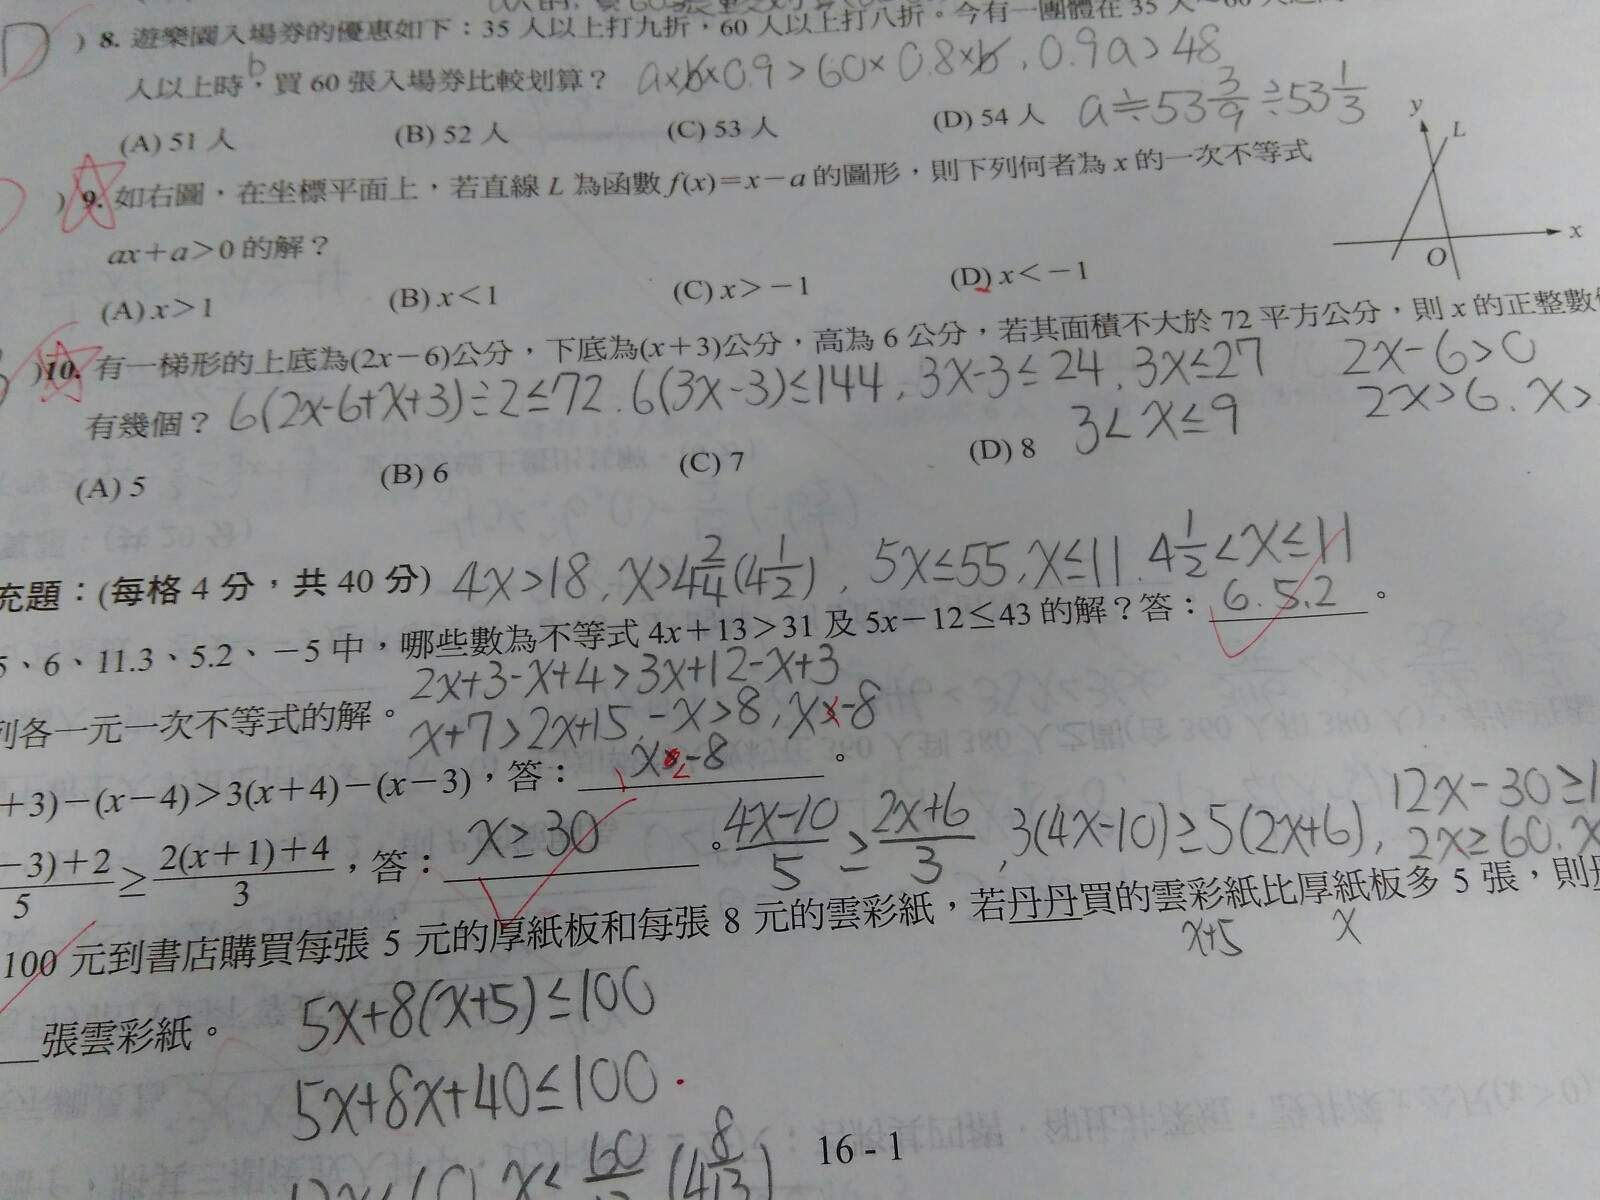 D ) 8. 遊樂園入場券的優惠如下：35 人以上打九折，60 人以上打八折。今有一團體在 35 人~60 人之
人以上時，買 60 張入場券比較划算？ a×b×0.9>60×0.8×b, 0.9a>48
b
(A) 51 人 (B) 52 人 (C) 53 人 (D) 54 人 a≒53 3/9 ≒53 1/3
) 9. 如右圖，在坐標平面上，若直線 L 為函數 f(x)=x−a 的圖形，則下列何者為 x 的一次不等式
ax+a>0 的解？
(A) x>1 (B) x<1 (C) x>−1 (D) x<−1
y
L
x
O
)10. 有一梯形的上底為(2x−6)公分，下底為(x+3)公分，高為 6 公分，若其面積不大於 72 平方公分，則 x 的正整數
有幾個？ 6(2x-6+x+3)÷2≤72. 6(3x-3)≤144, 3x-3≤24, 3x≤27
2x-6>0
2x>6. x>
3<x≤9
(A) 5 (B) 6 (C) 7 (D) 8
充題：(每格 4 分，共 40 分) 4x>18, x>4 2/4 (4 1/2), 5x≤55, x≤11. 4 1/2<x≤11
5、6、11.3、5.2、−5 中，哪些數為不等式 4x+13>31 及 5x−12≤43 的解？答：6. 5.2。
列各一元一次不等式的解。 2x+3-x+4>3x+12-x+3
x+7>2x+15, -x>8, x<-8
+3)−(x−4)>3(x+4)−(x−3)，答：x<-8。
−3)+2/5 ≥ 2(x+1)+4/3，答：x≥30。 4x-10/5 ≥ 2x+6/3, 3(4x-10)≥5(2x+6), 12x-30≥1
2x≥60. x
100 元到書店購買每張 5 元的厚紙板和每張 8 元的雲彩紙，若丹丹買的雲彩紙比厚紙板多 5 張，則
x+5 x
張雲彩紙。 5x+8(x+5)≤100
5x+8x+40≤100
x≤ 60 (4 8/13)
16 - 1